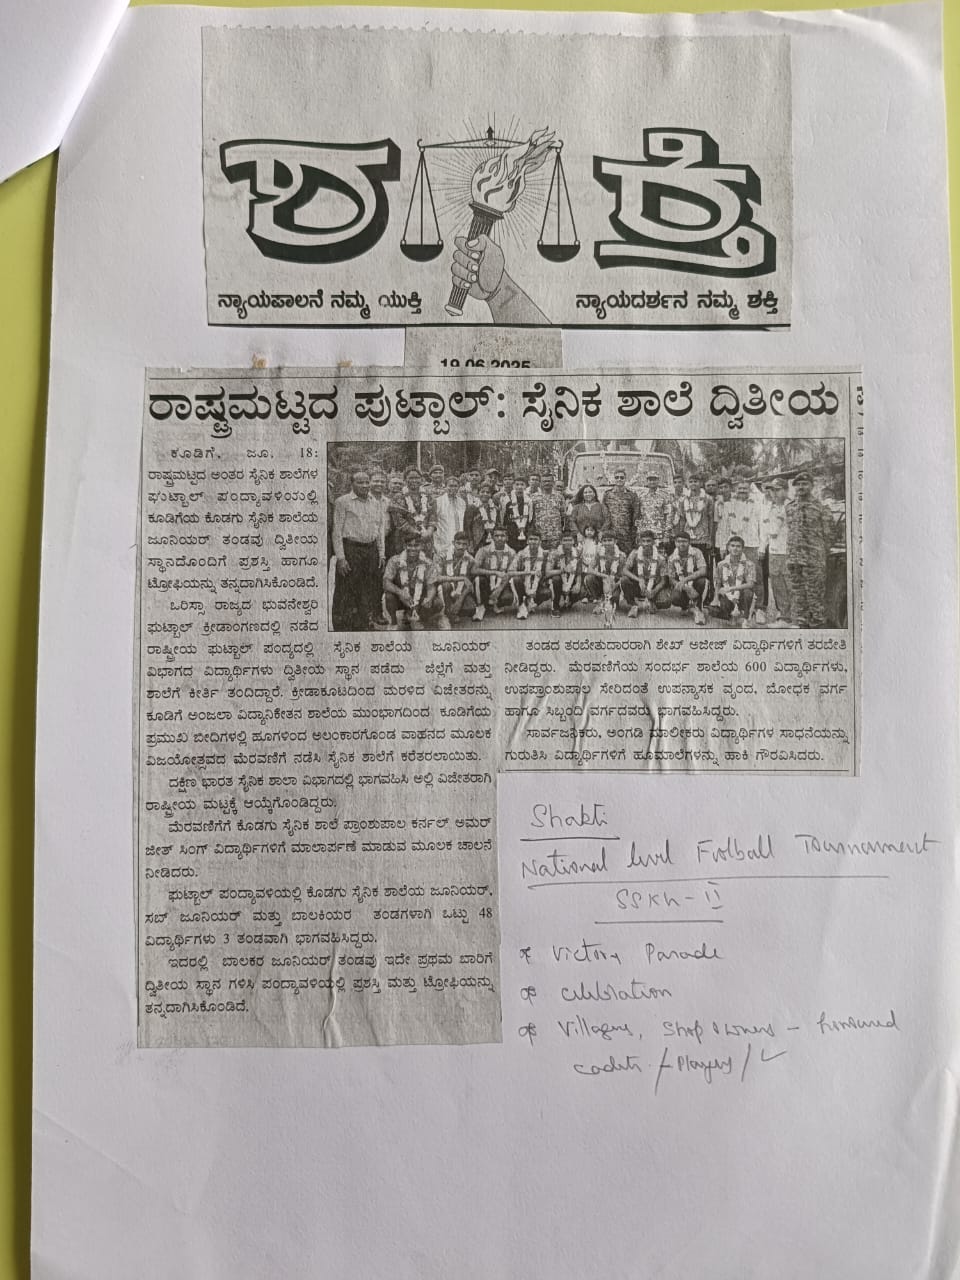 ಶಕ್ತಿ
ನ್ಯಾಯಪಾಲನೆ ನಮ್ಮ ಯುಕ್ತಿ
ನ್ಯಾಯದರ್ಶನ ನಮ್ಮ ಶಕ್ತಿ
19.06.2025
ರಾಷ್ಟ್ರಮಟ್ಟದ ಫುಟ್ಬಾಲ್: ಸೈನಿಕ ಶಾಲೆ ದ್ವಿತೀಯ
ಕೂಡಿಗೆ, ಜೂ. 18:
ರಾಷ್ಟ್ರಮಟ್ಟದ ಅಂತರ ಸೈನಿಕ ಶಾಲೆಗಳ
ಫುಟ್ಬಾಲ್ ಪಂದ್ಯಾವಳಿಯಲ್ಲಿ
ಕೂಡಿಗೆಯ ಕೊಡಗು ಸೈನಿಕ ಶಾಲೆಯ
ಜೂನಿಯರ್ ತಂಡವು ದ್ವಿತೀಯ
ಸ್ಥಾನದೊಂದಿಗೆ ಪ್ರಶಸ್ತಿ ಹಾಗೂ
ಟ್ರೋಫಿಯನ್ನು ತನ್ನದಾಗಿಸಿಕೊಂಡಿದೆ.
ಒರಿಸ್ಸಾ ರಾಜ್ಯದ ಭುವನೇಶ್ವರಿ
ಫುಟ್ಬಾಲ್ ಕ್ರೀಡಾಂಗಣದಲ್ಲಿ ನಡೆದ
ರಾಷ್ಟ್ರೀಯ ಫುಟ್ಬಾಲ್ ಪಂದ್ಯದಲ್ಲಿ ಸೈನಿಕ ಶಾಲೆಯ ಜೂನಿಯರ್
ವಿಭಾಗದ ವಿದ್ಯಾರ್ಥಿಗಳು ದ್ವಿತೀಯ ಸ್ಥಾನ ಪಡೆದು ಜಿಲ್ಲೆಗೆ ಮತ್ತು
ಶಾಲೆಗೆ ಕೀರ್ತಿ ತಂದಿದ್ದಾರೆ. ಕ್ರೀಡಾಕೂಟದಿಂದ ಮರಳಿದ ವಿಜೇತರನ್ನು
ಕೂಡಿಗೆ ಅಂಜಲಾ ವಿದ್ಯಾನಿಕೇತನ ಶಾಲೆಯ ಮುಂಭಾಗದಿಂದ ಕೂಡಿಗೆಯ
ಪ್ರಮುಖ ಬೀದಿಗಳಲ್ಲಿ ಹೂಗಳಿಂದ ಅಲಂಕಾರಗೊಂಡ ವಾಹನದ ಮೂಲಕ
ವಿಜಯೋತ್ಸವದ ಮೆರವಣಿಗೆ ನಡೆಸಿ ಸೈನಿಕ ಶಾಲೆಗೆ ಕರೆತರಲಾಯಿತು.
ದಕ್ಷಿಣ ಭಾರತ ಸೈನಿಕ ಶಾಲಾ ವಿಭಾಗದಲ್ಲಿ ಭಾಗವಹಿಸಿ ಅಲ್ಲಿ ವಿಜೇತರಾಗಿ
ರಾಷ್ಟ್ರೀಯ ಮಟ್ಟಕ್ಕೆ ಆಯ್ಕೆಗೊಂಡಿದ್ದರು.
ಮೆರವಣಿಗೆಗೆ ಕೊಡಗು ಸೈನಿಕ ಶಾಲೆ ಪ್ರಾಂಶುಪಾಲ ಕರ್ನಲ್ ಅಮರ್
ಜೀತ್ ಸಿಂಗ್ ವಿದ್ಯಾರ್ಥಿಗಳಿಗೆ ಮಾಲಾರ್ಪಣೆ ಮಾಡುವ ಮೂಲಕ ಚಾಲನೆ
ನೀಡಿದರು.
ಫುಟ್ಬಾಲ್ ಪಂದ್ಯಾವಳಿಯಲ್ಲಿ ಕೊಡಗು ಸೈನಿಕ ಶಾಲೆಯ ಜೂನಿಯರ್,
ಸಬ್ ಜೂನಿಯರ್ ಮತ್ತು ಬಾಲಕಿಯರ ತಂಡಗಳಾಗಿ ಒಟ್ಟು 48
ವಿದ್ಯಾರ್ಥಿಗಳು 3 ತಂಡವಾಗಿ ಭಾಗವಹಿಸಿದ್ದರು.
ಇದರಲ್ಲಿ ಬಾಲಕರ ಜೂನಿಯರ್ ತಂಡವು ಇದೇ ಪ್ರಥಮ ಬಾರಿಗೆ
ದ್ವಿತೀಯ ಸ್ಥಾನ ಗಳಿಸಿ ಪಂದ್ಯಾವಳಿಯಲ್ಲಿ ಪ್ರಶಸ್ತಿ ಮತ್ತು ಟ್ರೋಫಿಯನ್ನು
ತನ್ನದಾಗಿಸಿಕೊಂಡಿದೆ.
ತಂಡದ ತರಬೇತುದಾರರಾಗಿ ಶೇಖ್ ಅಜೀಜ್ ವಿದ್ಯಾರ್ಥಿಗಳಿಗೆ ತರಬೇತಿ
ನೀಡಿದ್ದರು. ಮೆರವಣಿಗೆಯ ಸಂದರ್ಭ ಶಾಲೆಯ 600 ವಿದ್ಯಾರ್ಥಿಗಳು,
ಉಪಪ್ರಾಂಶುಪಾಲ ಸೇರಿದಂತೆ ಉಪನ್ಯಾಸಕ ವೃಂದ, ಬೋಧಕ ವರ್ಗ
ಹಾಗೂ ಸಿಬ್ಬಂದಿ ವರ್ಗದವರು ಭಾಗವಹಿಸಿದ್ದರು.
ಸಾರ್ವಜನಿಕರು, ಅಂಗಡಿ ಮಾಲೀಕರು ವಿದ್ಯಾರ್ಥಿಗಳ ಸಾಧನೆಯನ್ನು
ಗುರುತಿಸಿ ವಿದ್ಯಾರ್ಥಿಗಳಿಗೆ ಹೂಮಾಲೆಗಳನ್ನು ಹಾಕಿ ಗೌರವಿಸಿದರು.
Shakti
National level Football Tournament
SSKh - II
* Victory Parade
* Celebration
* Villagers, Shop owners - honoured
cadets / Players /